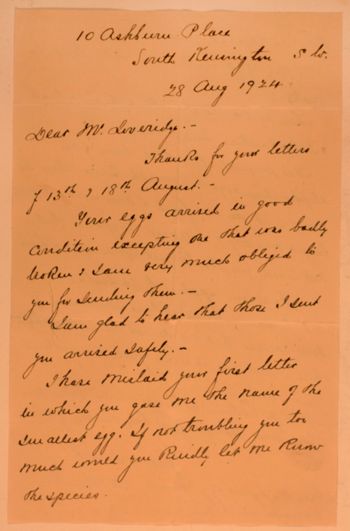 10 Ashburn Place
South Kensington S W.
28 Aug 1924
Dear Mr. Loveridge.-
Thanks for your letters
of 13th & 18th August.-
Your eggs arrived in good
condition excepting one that was badly
broken & I am very much obliged to
you for sending them.-
I am glad to hear that those I sent
you arrived safely.-
I have mislaid your first letter
in which you gave me the name of the
smallest egg. If not troubling you too
much would you kindly let me know
the species.